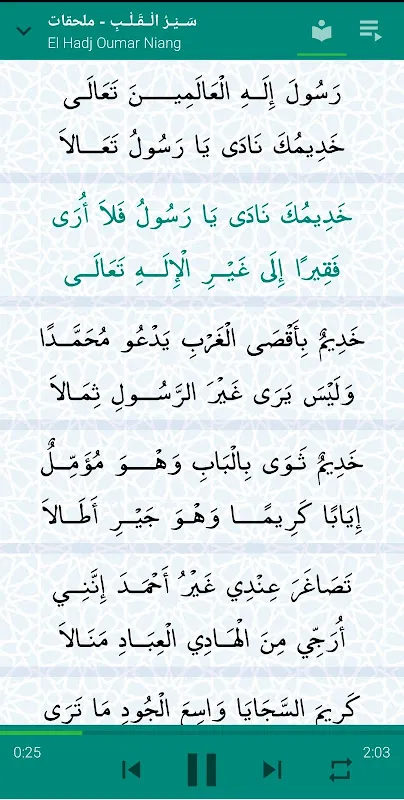 سَـيْـرُ الْـقَـلْـبِ - ملحقات
El Hadj Oumar Niang
رَسُولَ إِلَـهِ الْعَالَمِيـــنَ تَعَالَـى
خَدِيمُكَ نَادَى يَا رَسُولُ تَعَــالاَ
خَدِيمُكَ نَادَى يَا رَسُولُ فَلاَ أُرَى
فَقِيرًا إِلَى غَيْـــرِ الْإِلَـــهِ تَعَالَـــى
خَدِيمٌ بِأَقْصَى الْغَرْبِ يَدْعُو مُحَمَّــدًا
وَلَيْسَ يَرَى غَيْرَ الرَّسُــولِ ثِمَـالاَ
خَدِيمٌ ثَوَى بِالْبَابِ وَهْـــوَ مُؤَمِّــلٌ
إِيَابًا كَرِيمًـــا وَهْـوَ جَيْـــرِ أَطَـالاَ
تَصَاغَرَ عِنْدِي غَيْرُ أَحْمَـدَ إِنَّنِـــي
أُرَجِّي مِنَ الْهَــادِي الْعِبَـادِ مَنَـالاَ
كَرِيمَ السَّجَايَا وَاسِعَ الْجُودِ مَا تَرَى
0:25
2:03